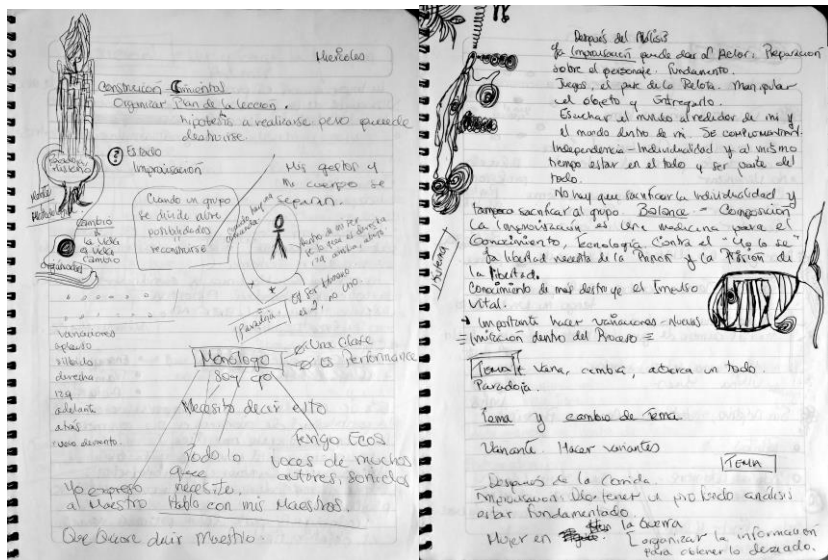 Miercoles
Construcción - Cimientos
Organizar Plan de la leccion.
hipotesis a realizarse pero puede
destruirse.
Estado
Improvisación
Mis gestos y
mi cuerpo se
separan.
Cuando un grupo
se divide abre
posibilidades
reconstruirse
Cambio
a la vida
la vida
cambio
Organicidad
Paradoja
El ser humano
es 2, no uno.
Variaciones
aplauso
silbido
derecha
izq
adelante
atrás
Monólogo
Una Clase
Es Performance
Soy yo
Necesito decir esto
Tengo Ecos
voces de muchos
autores, sonidos
Todo lo
que
necesito.
Hablo con mis Maestros.
Yo expreso
al Maestro
Que Quiere decir Maestro.
Después del Análisis
La Improvisación puede dar al Actor: Preparación
sobre el personaje. Fundamento.
Juegos, el pase de la Pelota. Manipular
el objeto y Entregarlo.
Escuchar el mundo alrededor de mi y
el mondo dentro de mi. Se complementan.
Independencia - Individualidad y al mismo
tiempo estar en el todo y ser parte del
todo.
No hay que sacrificar la individualidad y
tampoco sacrificar al grupo Balance - Composición
La Improvisación es una medicina para el
Conocimiento, Tecnología contra el "Yo lo se"
La libertad necesita de la Prision y la Prision de
la libertad.
Conocimiento de más destruye el Impulso
Vital.
Importante hacer variaciones - Nuevas
Imitación dentro del Proceso
Tema Varia, cambia, abarca un todo.
Paradoja.
Tema y cambio de Tema
Variante. Hacer variantes
TEMA
Después de la Comida.
Improvisacion. Debo tener un profundo análisis
estar fundamentado.
Mujer en la Guerra
organizar la información
para obtener lo deseado.